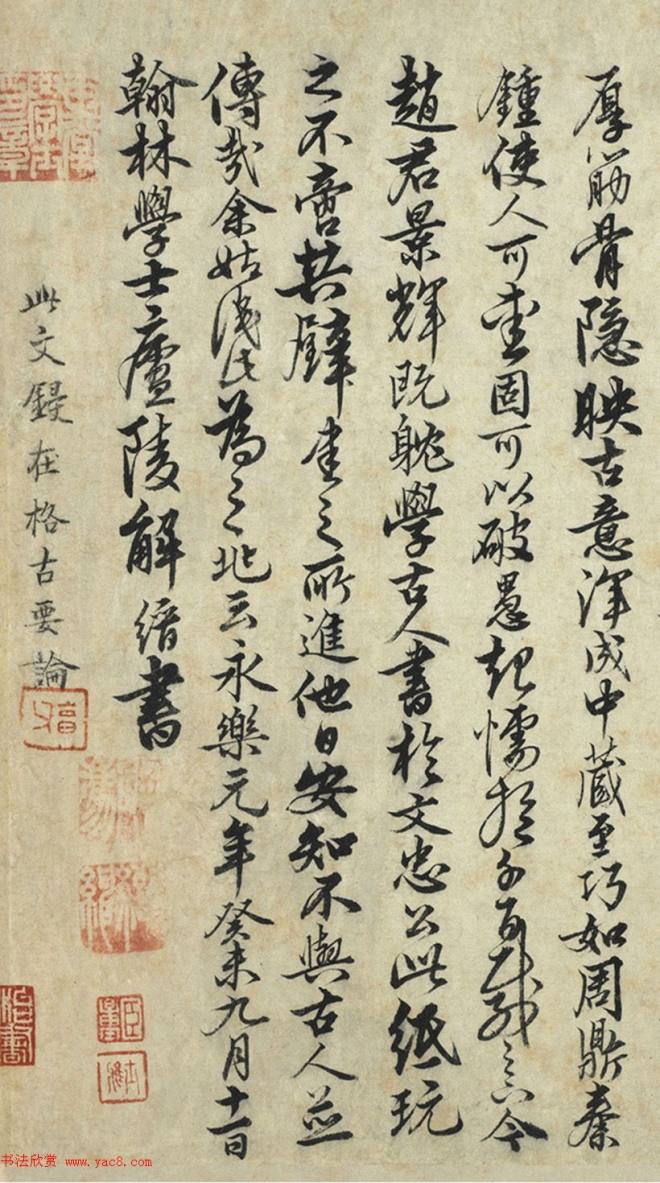 厚筋骨隐映古意渾成中藏至巧如周鼎秦
鍾使人可重固可以破愚起懦於千百載之下今
趙君景輝既能學古人書於文忠公此紙玩
之不啻拱璧重之所進他日安知不與古人並
傳哉余姑識此為之兆云永樂元年癸未九月十一日
翰林學士廬陵解縉書
此文錽在格古要論
书法欣赏 www.yac8.com